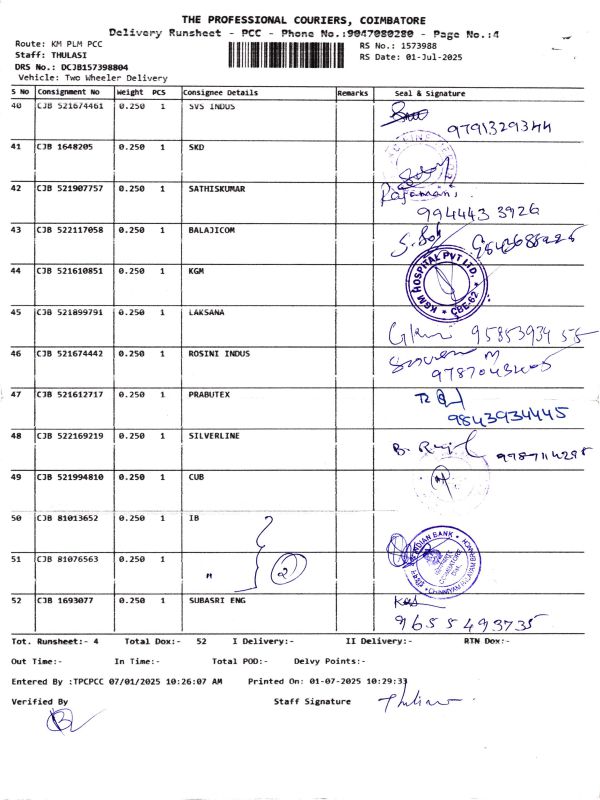 THE PROFESSIONAL COURIERS, COIMBATORE
Delivery Runsheet - PCC - Phone No.:9047080280 - Page No.:4
Route: KM PLM PCC
Staff: THULASI
DRS No.: DCJB157398804
Vehicle: Two Wheeler Delivery
RS No.: 1573988
RS Date: 01-Jul-2025
S No Consignment No Weight PCS Consignee Details Remarks Seal & Signature
40 CJB 521674461 0.250 1 SVS INDUS
9791329344
41 CJB 1648205 0.250 1 SKD
42 CJB 521907757 0.250 1 SATHISKUMAR
Rajamani
994443 3926
43 CJB 522117058 0.250 1 BALAJICOM
44 CJB 521610851 0.250 1 KGM
K&M HOSPITAL PVT LTD. CBE-62
45 CJB 521899791 0.250 1 LAKSANA
95853934 55
46 CJB 521674442 0.250 1 ROSINI INDUS
47 CJB 521612717 0.250 1 PRABUTEX
9843934445
48 CJB 522169219 0.250 1 SILVERLINE
49 CJB 521994810 0.250 1 CUB
50 CJB 81013652 0.250 1 IB
INDIAN BANK
51 CJB 81076563 0.250 1 "
2
52 CJB 1693077 0.250 1 SUBASRI ENG
9655493735
Tot. Runsheet:- 4 Total Dox:- 52 I Delivery:- II Delivery:- RTN Dox:-
Out Time:- In Time:- Total POD:- Delvy Points:-
Entered By :TPCPCC 07/01/2025 10:26:07 AM Printed On: 01-07-2025 10:29:33
Verified By Staff Signature